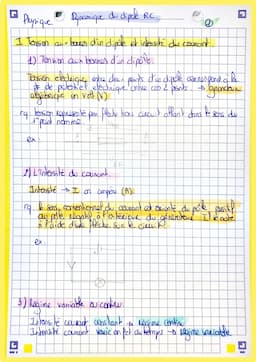 Physique Dynamique du dipôle RC
②
I Tension aux bornes d'un dipôle et intensité du courant.
1) Tension aux bornes d'un dipôle.
Tension électrique entre deux points d'un dipôle correspond à la
≠ de potentiel électrique entre ces 2 points. → grandeur
algébrique en Volt (V).
rq tension représentée par flèche hors circuit allant dans le sens du
1er point nommé.
ex:
2) L'intensité du courant.
Intensité → I en ampère (A)
rq: le sens conventionnel du courant est orienté du pôle positif
au pôle négatif à l'extérieur du générateur. Il se note
à l'aide d'une flèche sur le circuit.
ex:
3) Régime variable ou continu.
Intensité courant constant → régime continu
Intensité courant varie en fct du temps → régime variable.